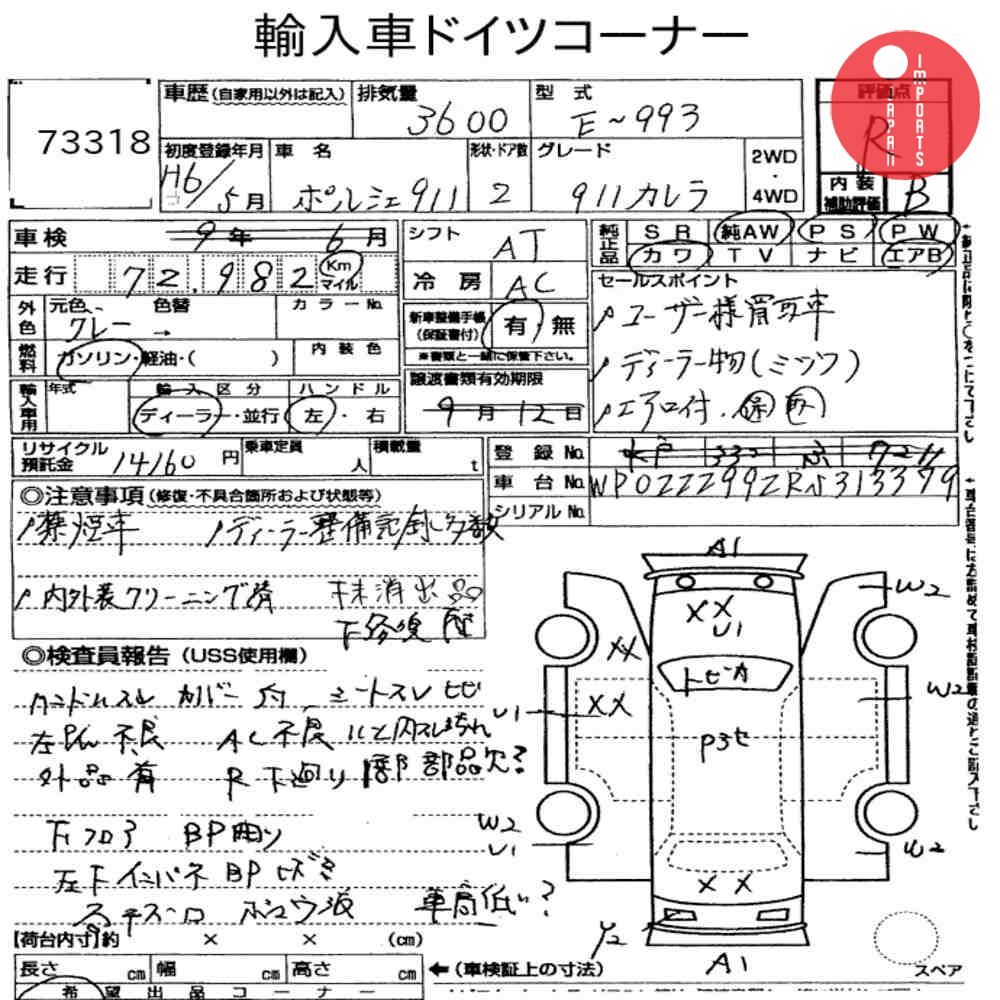 輸入車ドイツコーナー
JAPAN IMPORTS
73318
車歴 (自家用以外は記入) 排気量 3600 型式 E~993
評価点 R
初度登録年月 H6/5月 車名 ポルシェ911 形状・ドア数 2 グレード 911カレラ 2WD・4WD
内装補助評価 B
車検 9年 6月 シフト AT
純正品 SR 純AW PS PW
カワ TV ナビ エアB
走行 72,982 Km マイル 冷房 AC
セールスポイント
外色 元色 グレー → 色替 カラーNo.
新車整備手帳 (保証書付) 有・無
ユーザー様買取車
燃料 ガソリン・軽油・( ) 内装色
※書類と一緒に保管下さい。
ディーラー物(ミツワ)
輸入車用 年式 輸入区分 ハンドル
譲渡書類有効期限
ディーラー・並行 左・右 9月12日
エアロ付. 保 取
リサイクル預託金 14160円 乗車定員 人 積載量 t
登録No. 水戸 332
車台No. WP0ZZZ99ZRS313379
シリアルNo.
◎注意事項 (修復・不具合箇所および状態等)
禁煙車 ディーラー整備記録多数
内外装クリーニング済 抹消出品
下修復歴
◎検査員報告 (USS使用欄)
ハンドルスレ カバー付 シートスレ ヒビ
左PW不良 AC不良
外品有 R下廻り 部品欠?
下フロア BP曲り
左下インパネBPヒズミ
車高低い?
A1
W2
XX
U1
XX
トビ石
W2
U1
XX
P3セ
W2
U1
W2
XX
Y2
A1
スペア
【荷台内寸】約 × × (cm)
長さ cm 幅 cm 高さ cm
←(車検証上の寸法)
希望出品コーナー